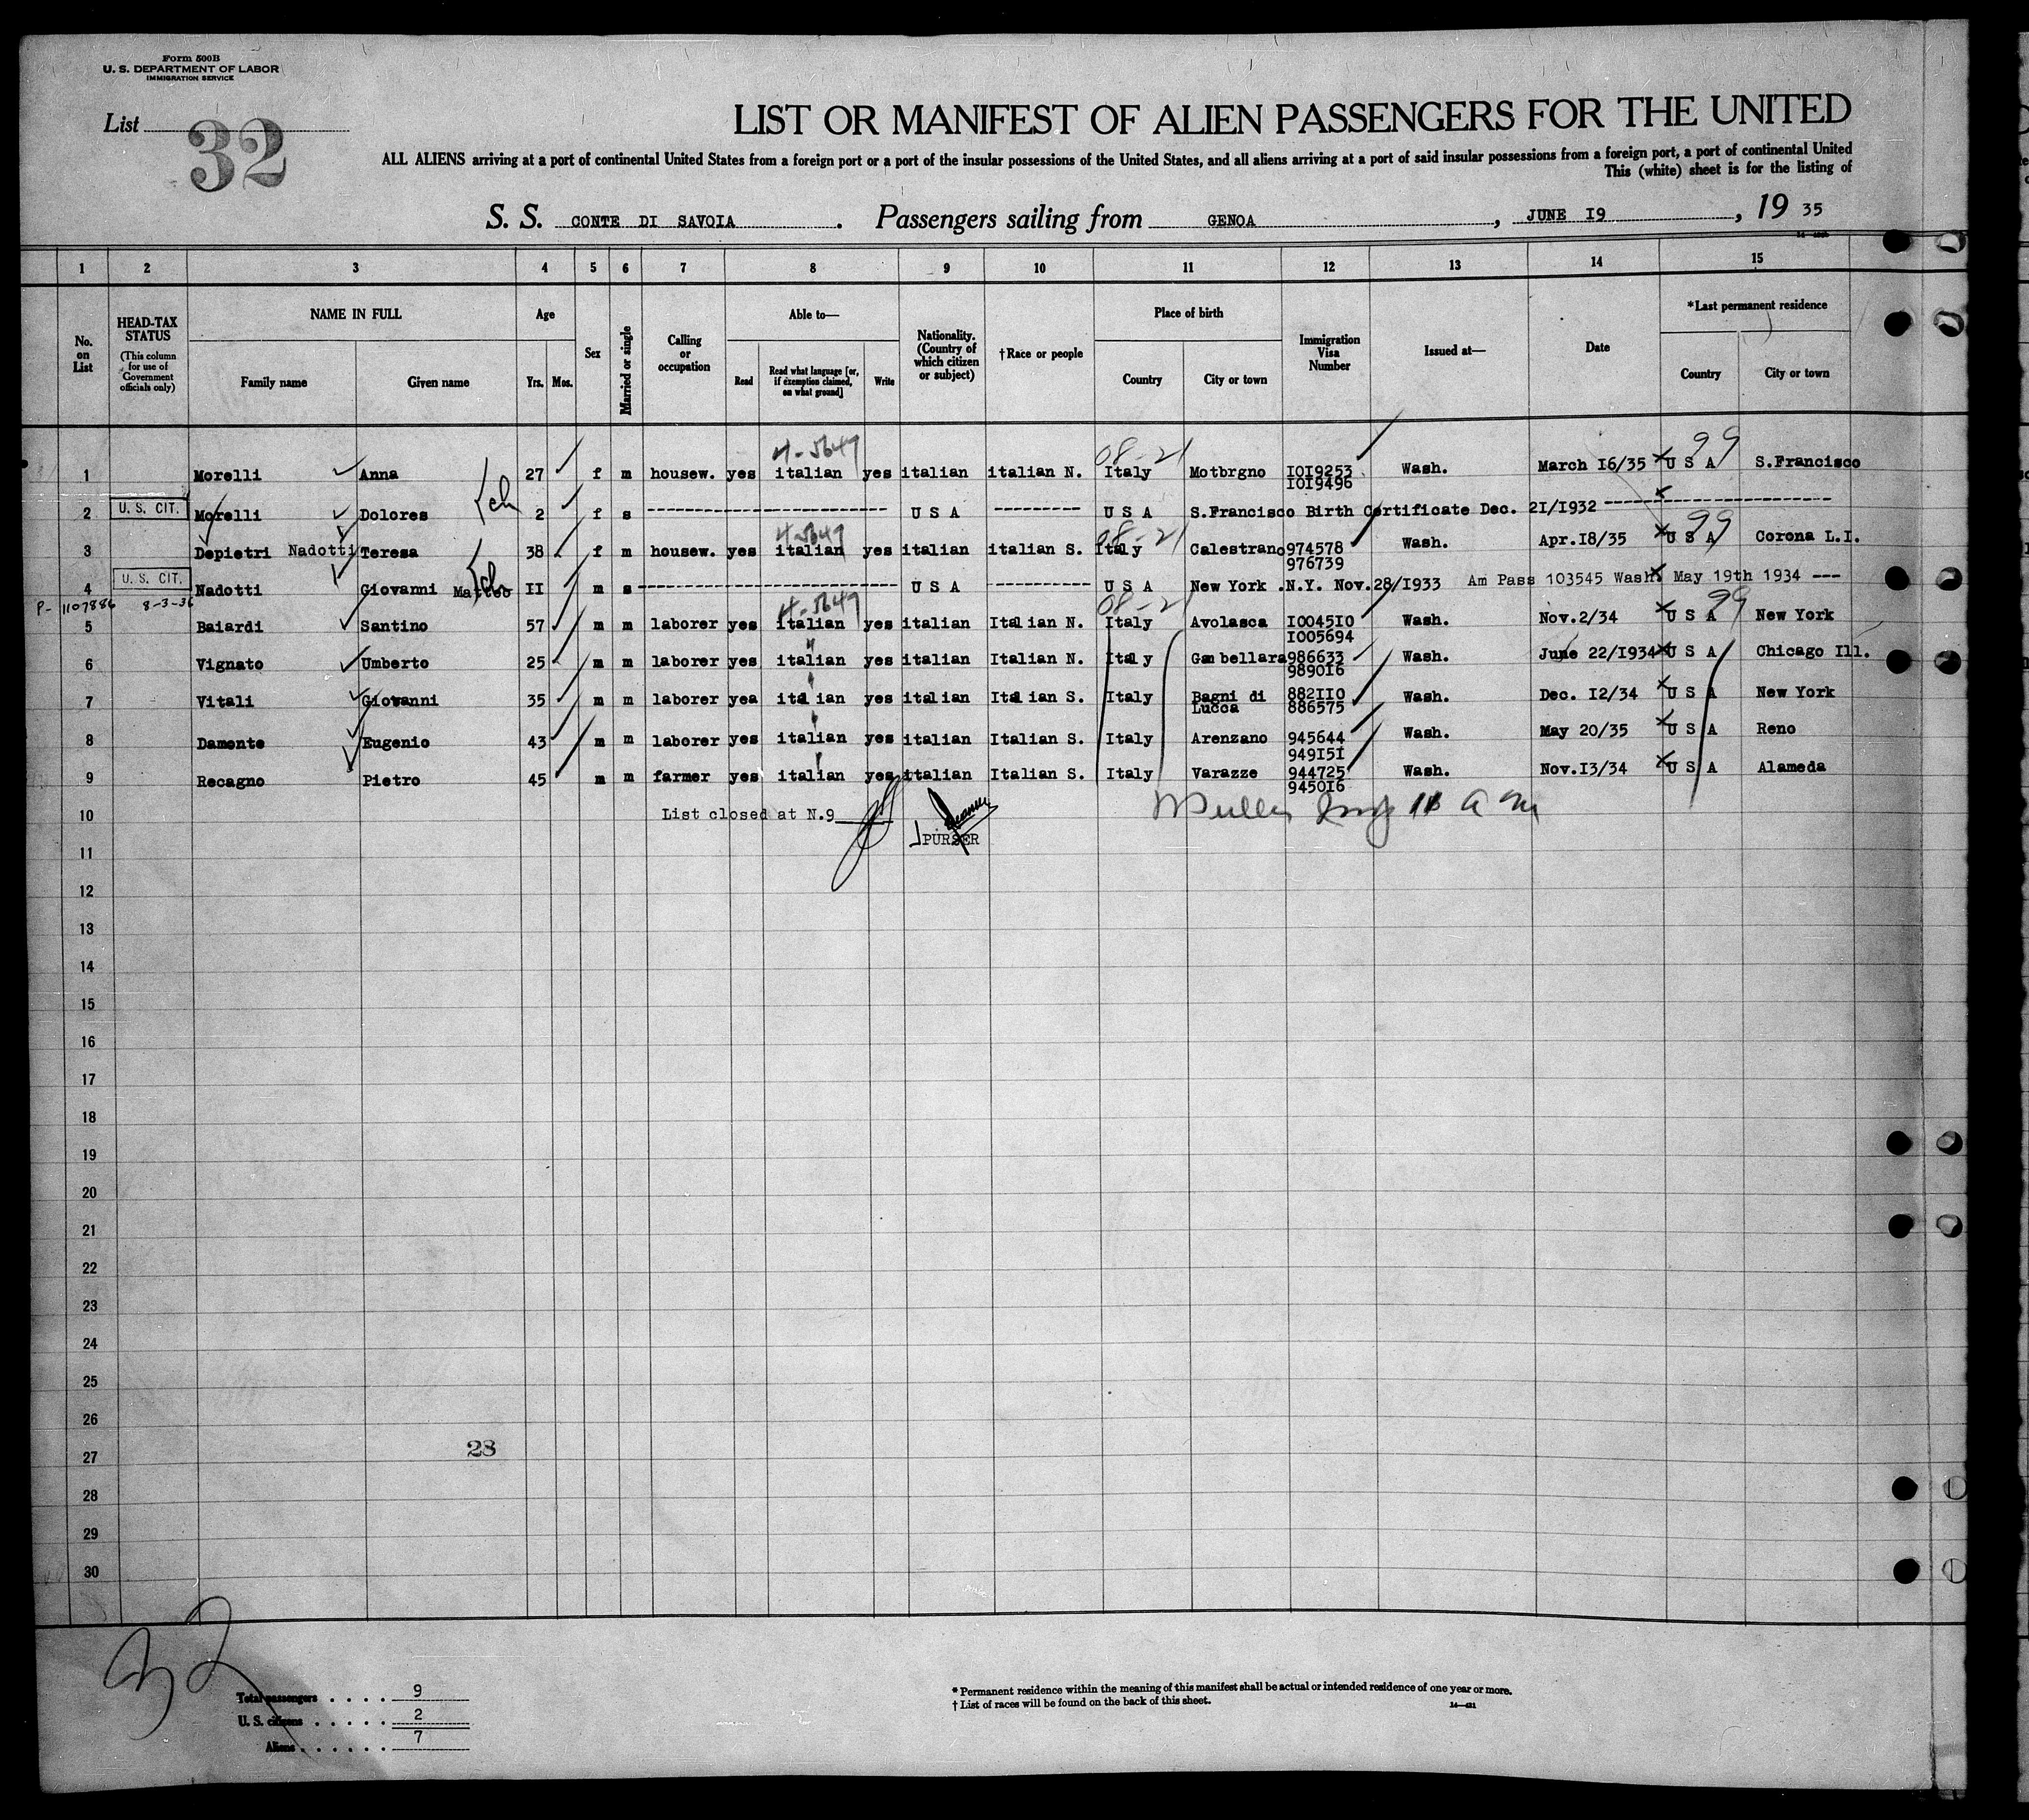 Form 500B
U. S. DEPARTMENT OF LABOR
IMMIGRATION SERVICE
List 32
LIST OR MANIFEST OF ALIEN PASSENGERS FOR THE UNITED
ALL ALIENS arriving at a port of continental United States from a foreign port or a port of the insular possessions of the United States, and all aliens arriving at a port of said insular possessions from a foreign port, a port of continental United
This (white) sheet is for the listing of
S. S. CONTE DI SAVOIA . Passengers sailing from GENOA , JUNE I9 , 19 35
1 2 3 4 5 6 7 8 9 10 11 12 13 14 15
No. on List
HEAD-TAX STATUS (This column for use of Government officials only)
NAME IN FULL Family name Given name
Age Yrs. Mos.
Sex
Married or single
Calling or occupation
Able to— Read Read what language [or, if exemption claimed, on what ground] Write
Nationality. (Country of which citizen or subject)
†Race or people
Place of birth Country City or town
Immigration Visa Number
Issued at—
Date
*Last permanent residence Country City or town
4-5647 08-21 99
1 Morelli Anna 27 f m housew. yes italian yes italian italian N. Italy Motbrgno I0I9253 Wash. March I6/35 U S A S.Francisco
I0I9496
2 U. S. CIT. Morelli Dolores ch 2 f s U S A U S A S.Francisco Birth Certificate Dec. 2I/I932
4-5647 08-21 99
3 Depietri Nadotti Teresa 38 f m housew. yes italian yes italian italian S. Italy Calestrano 974578 Wash. Apr.I8/35 U S A Corona L.I.
976739
4 U. S. CIT. Nadotti Giovanni Matteo ch II m s U S A U S A New York .N.Y. Nov.28/I933 Am Pass 103545 Wash. May 19th 1934 ---
P- 1107886 8-3-36 4-5647 08-21 99
5 Baiardi Santino 57 m m laborer yes italian yes italian Italian N. Italy Avolasca I0045I0 Wash. Nov.2/34 U S A New York
I005694
6 Vignato Umberto 25 m m laborer yes italian yes italian Italian N. Italy Gambellara 986633 Wash. June 22/I934 U S A Chicago Ill.
989016
7 Vitali Giovanni 35 m m laborer yea italian yes italian Italian S. Italy Bagni di 882II0 Wash. Dec. I2/34 U S A New York
Lucca 886575
8 Damonte Eugenio 43 m m laborer yes italian yes italian Italian S. Italy Arenzano 945644 Wash. May 20/35 U S A Reno
949I5I
9 Recagno Pietro 45 m m farmer yes italian yes italian Italian S. Italy Varazze 944725 Wash. Nov.I3/34 U S A Alameda
9450I6
10 List closed at N.9
PURSER
11
12
13
14
15
16
17
18
19
20
21
22
23
24
25
26
28
27
28
29
30
Total passengers . . . . 9
U. S. citizens . . . . . 2
Aliens . . . . . . 7
* Permanent residence within the meaning of this manifest shall be actual or intended residence of one year or more.
† List of races will be found on the back of this sheet.